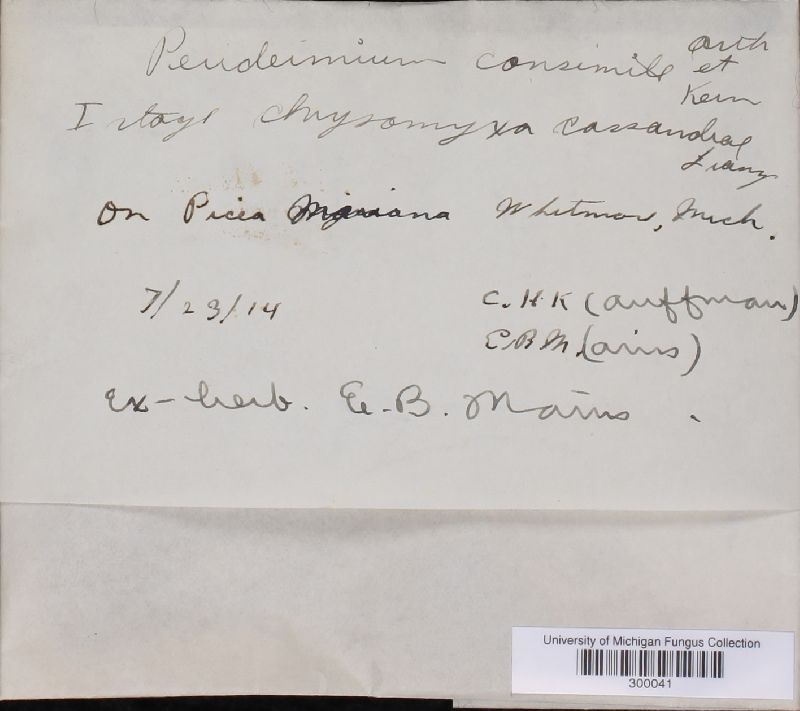 Peridermium consimile Arth et Kern
I stage Chrysomyxa cassandrae Tranz
On Picea Mariana Whitmore, Mich.
7/23/14 C.H.K(auffman)
E.B.M.(ains)
Ex-herb. E.B. Mains.
University of Michigan Fungus Collection
300041